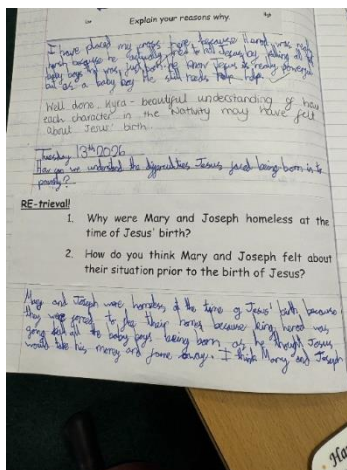 Explain your reasons why.
I have placed my cross here because Herod was really
harsh because he actually tried to kill Jesus by killing all the
baby boys
but as a baby boy He still needs help.
Well done, Kyra - beautiful understanding of how
each character in the Nativity may have felt
about Jesus' birth.
Tuesday 13th 2026
How can we understand the difficulties Jesus faced being born in to
poverty?
RE-trieval!
1. Why were Mary and Joseph homeless at the
time of Jesus' birth?
2. How do you think Mary and Joseph felt about
their situation prior to the birth of Jesus?
Mary and Joseph were homeless at the time of Jesus' birth because
they were forced to flee their homes because king herod was
going kill all the baby boys being born as he thought Jesus
would take his money and fame away. I think Mary and Joseph
Ha